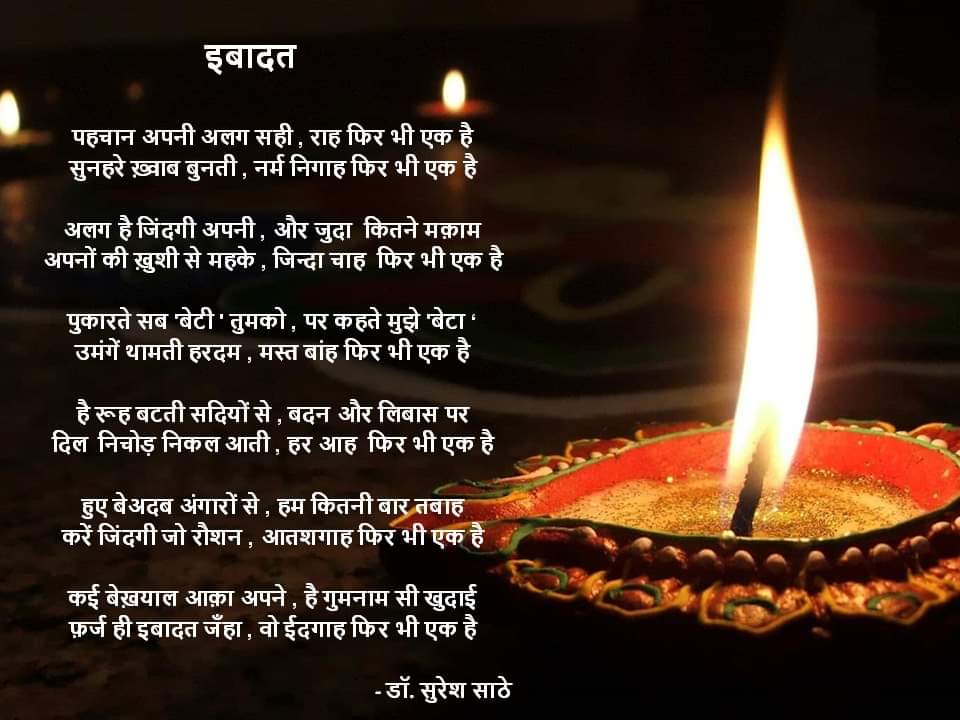 इबादत
पहचान अपनी अलग सही , राह फिर भी एक है
सुनहरे ख़्वाब बुनती , नर्म निगाह फिर भी एक है
अलग है जिंदगी अपनी , और जुदा कितने मक़ाम
अपनों की ख़ुशी से महके , जिन्दा चाह फिर भी एक है
पुकारते सब 'बेटी ' तुमको , पर कहते मुझे 'बेटा ‘
उमंगें थामती हरदम , मस्त बांह फिर भी एक है
है रूह बटती सदियों से , बदन और लिबास पर
दिल निचोड़ निकल आती , हर आह फिर भी एक है
हुए बेअदब अंगारों से , हम कितनी बार तबाह
करें जिंदगी जो रौशन , आतशगाह फिर भी एक है
कई बेख़याल आक़ा अपने , है गुमनाम सी खुदाई
फ़र्ज ही इबादत जँहा , वो ईदगाह फिर भी एक है
- डॉ. सुरेश साठे